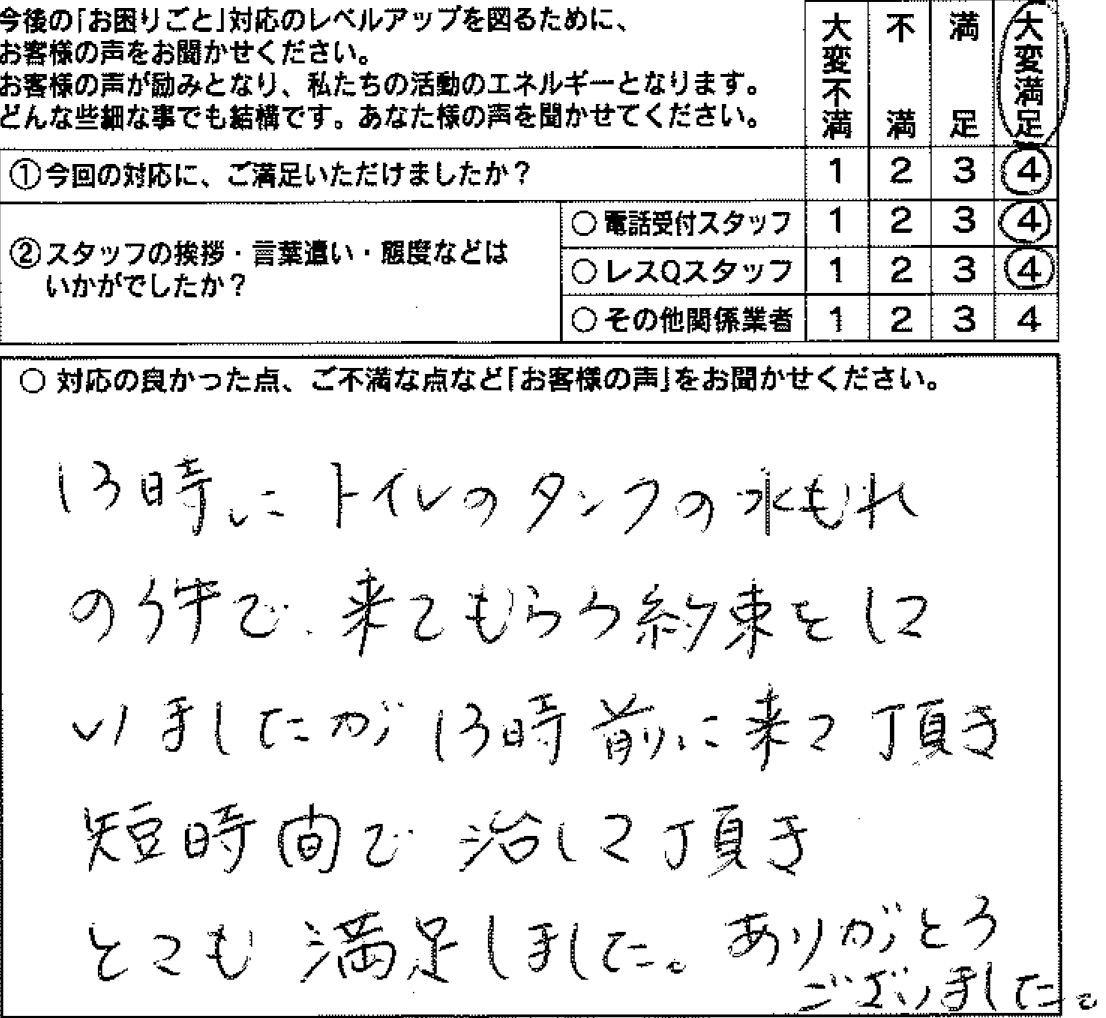 今後の「お困りごと」対応のレベルアップを図るために、
お客様の声をお聞かせください。
お客様の声が励みとなり、私たちの活動のエネルギーとなります。
どんな些細な事でも結構です。あなた様の声を聞かせてください。
大変不満 不満 満足 大変満足
①今回の対応に、ご満足いただけましたか? 1 2 3 4
②スタッフの挨拶・言葉遣い・態度などは
いかがでしたか?
○電話受付スタッフ 1 2 3 4
○レスQスタッフ 1 2 3 4
○その他関係業者 1 2 3 4
○ 対応の良かった点、ご不満な点など「お客様の声」をお聞かせください。
13時に トイレの タンクの 水もれ
の件で、来てもらう約束をして
いましたが 13時前に来て頂き
短時間で 治して頂き
とても 満足しました。ありがとう
ございました。